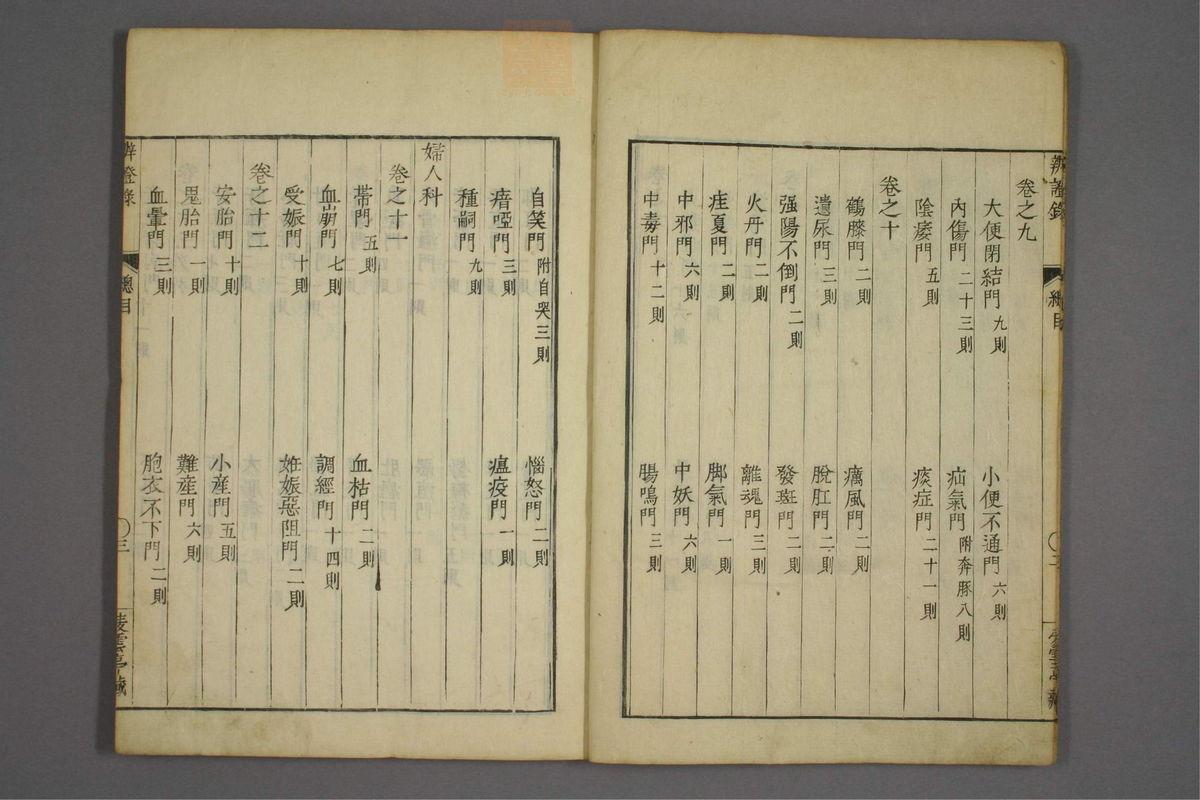 辨證錄 總目 二
卷之九
大便閉結門 九則 小便不通門 六則
內傷門 二十三則 疝氣門 附奔豚八則
陰痿門 五則 痰症門 二十一則
卷之十
鶴膝門 二則 癘風門 二則
遺尿門 三則 脫肛門 二則
强陽不倒門 二則 發斑門 二則
火丹門 二則 離魂門 三則
疰夏門 二則 脚氣門 一則
中邪門 六則 中妖門 六則
中毒門 十二則 腸鳴門 三則
自笑門 附自哭三則 惱怒門 二則
瘖啞門 三則 瘟疫門 一則
種嗣門 九則
婦人科
卷之十一
帶門 五則 血枯門 二則
血崩門 七則 調經門 十四則
受娠門 十則 妊娠惡阻門 二則
卷之十二
安胎門 十則 小產門 五則
鬼胎門 一則 難產門 六則
血暈門 三則 胞衣不下門 二則
辨證錄 總目 三 凌雲亭藏